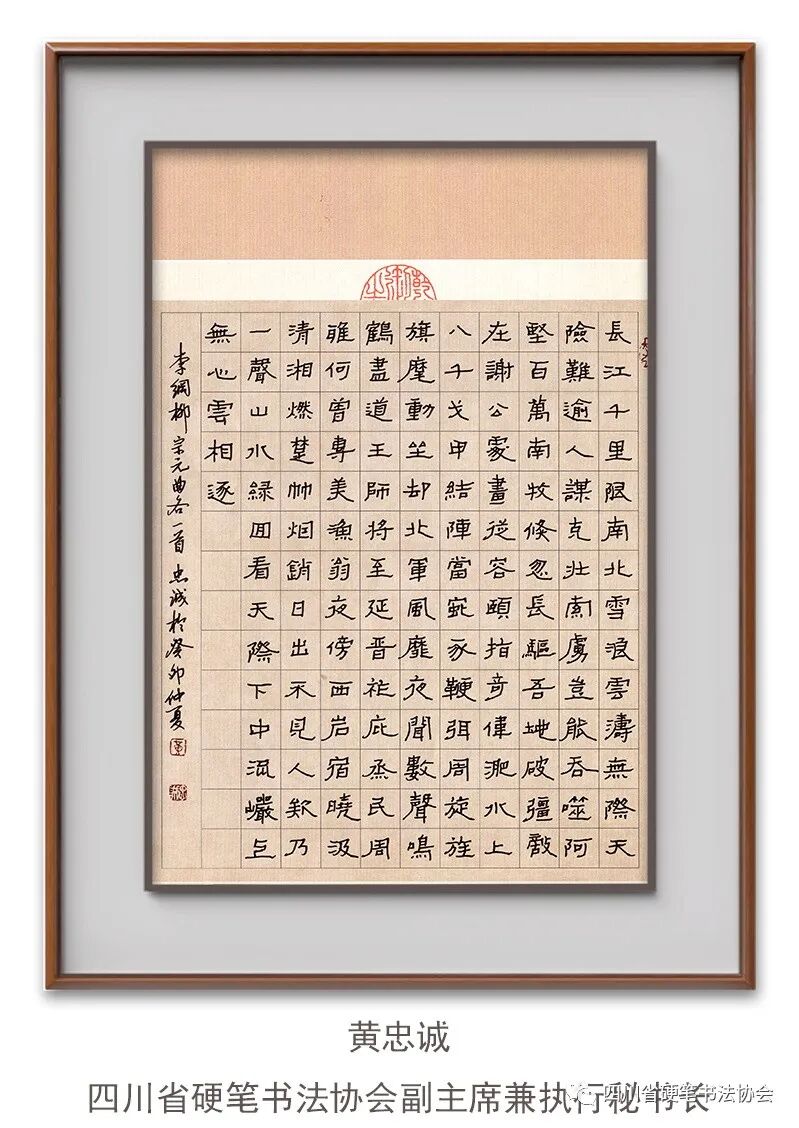 長江千里限南北雪浪雲濤無際天
險難逾人謀克壯索虜豈能吞噬阿
堅百萬南牧倏忽長驅吾地破彊敵
在謝公處畫從容頤指奇偉淝水上
八千戈甲結陣當蛇豕鞭弭周旋旌
旗麾動坐却北軍風靡夜聞數聲鳴
鶴盡道王師將至延晉祚庇烝民周
雖何曾專美漁翁夜傍西岩宿曉汲
清湘燃楚竹烟銷日出不見人欸乃
一聲山水緑回看天際下中流巖上
無心雲相逐
李綱柳宗元曲各一首 忠誠於癸卯仲夏
黄忠诚
四川省硬笔书法协会副主席兼执行秘书长
四川省硬笔书法协会